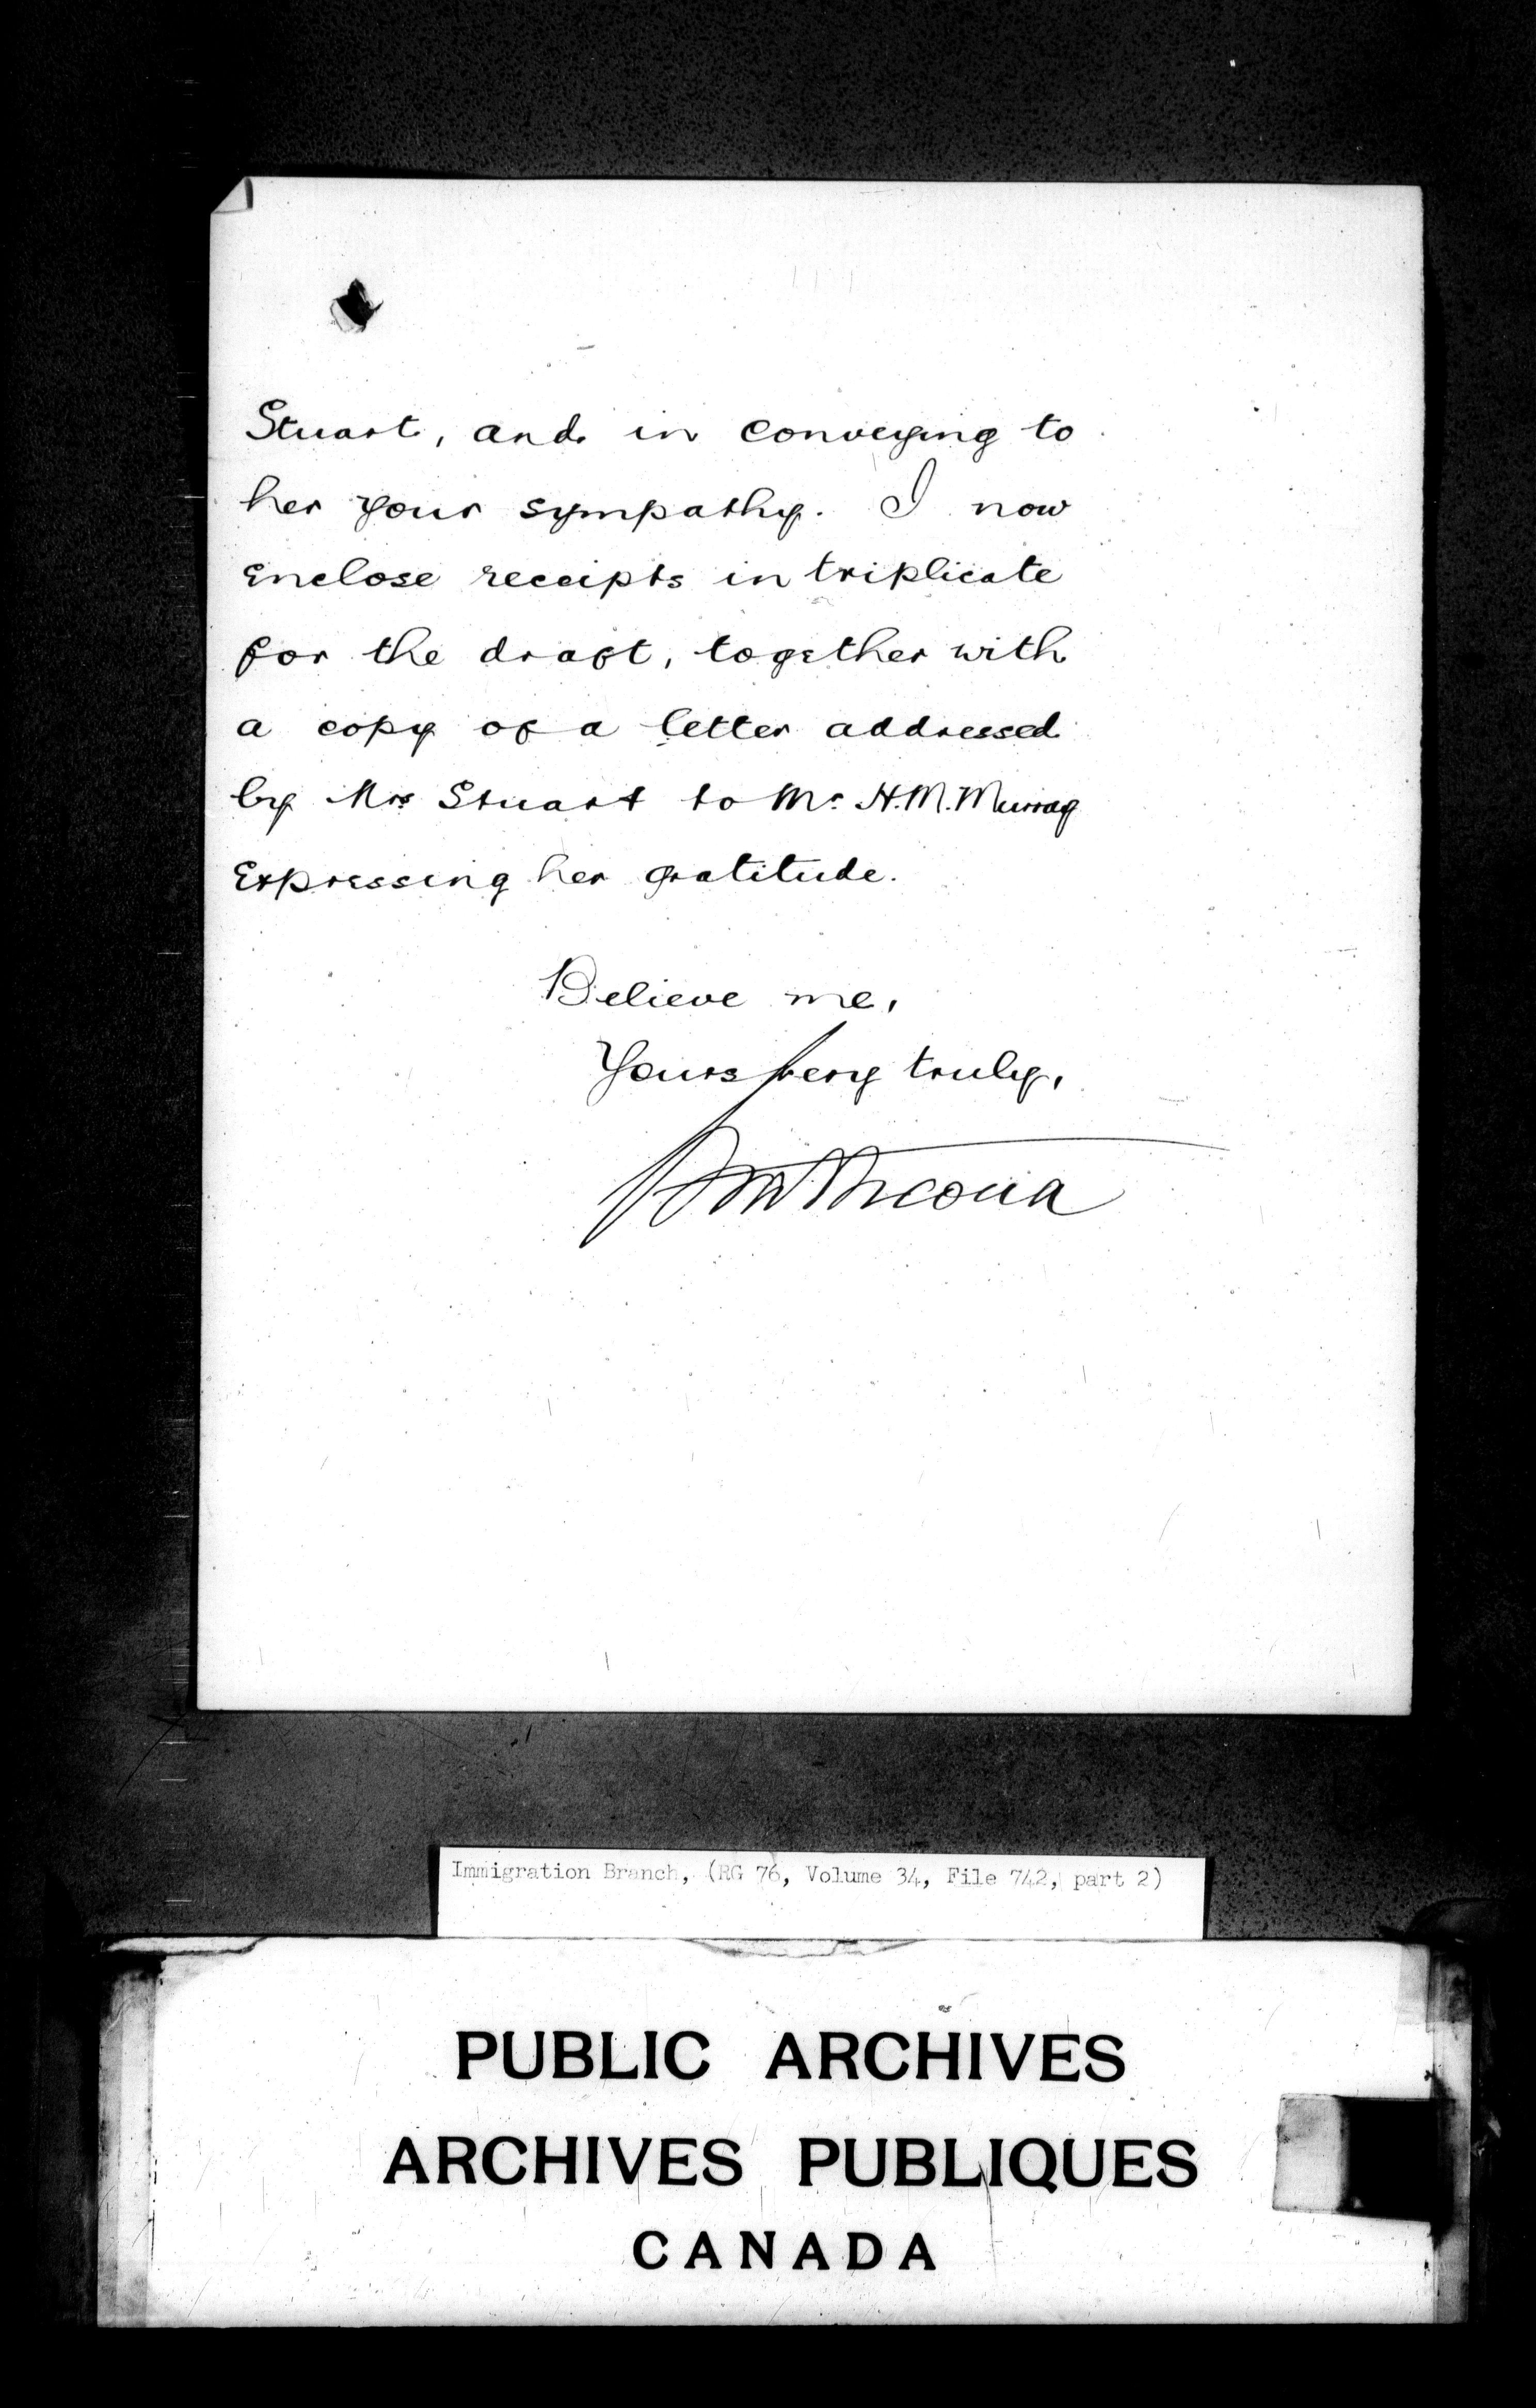 Stuart, and in conveying to
her your sympathy. I now
enclose receipts in triplicate
for the draft, together with
a copy of a letter addressed
by Mrs Stuart to Mr H.M. Murray
expressing her gratitude.
Believe me,
Yours very truly,
Strathcona
Immigration Branch, (RG 76, Volume 34, File 742, part 2)
PUBLIC ARCHIVES
ARCHIVES PUBLIQUES
CANADA